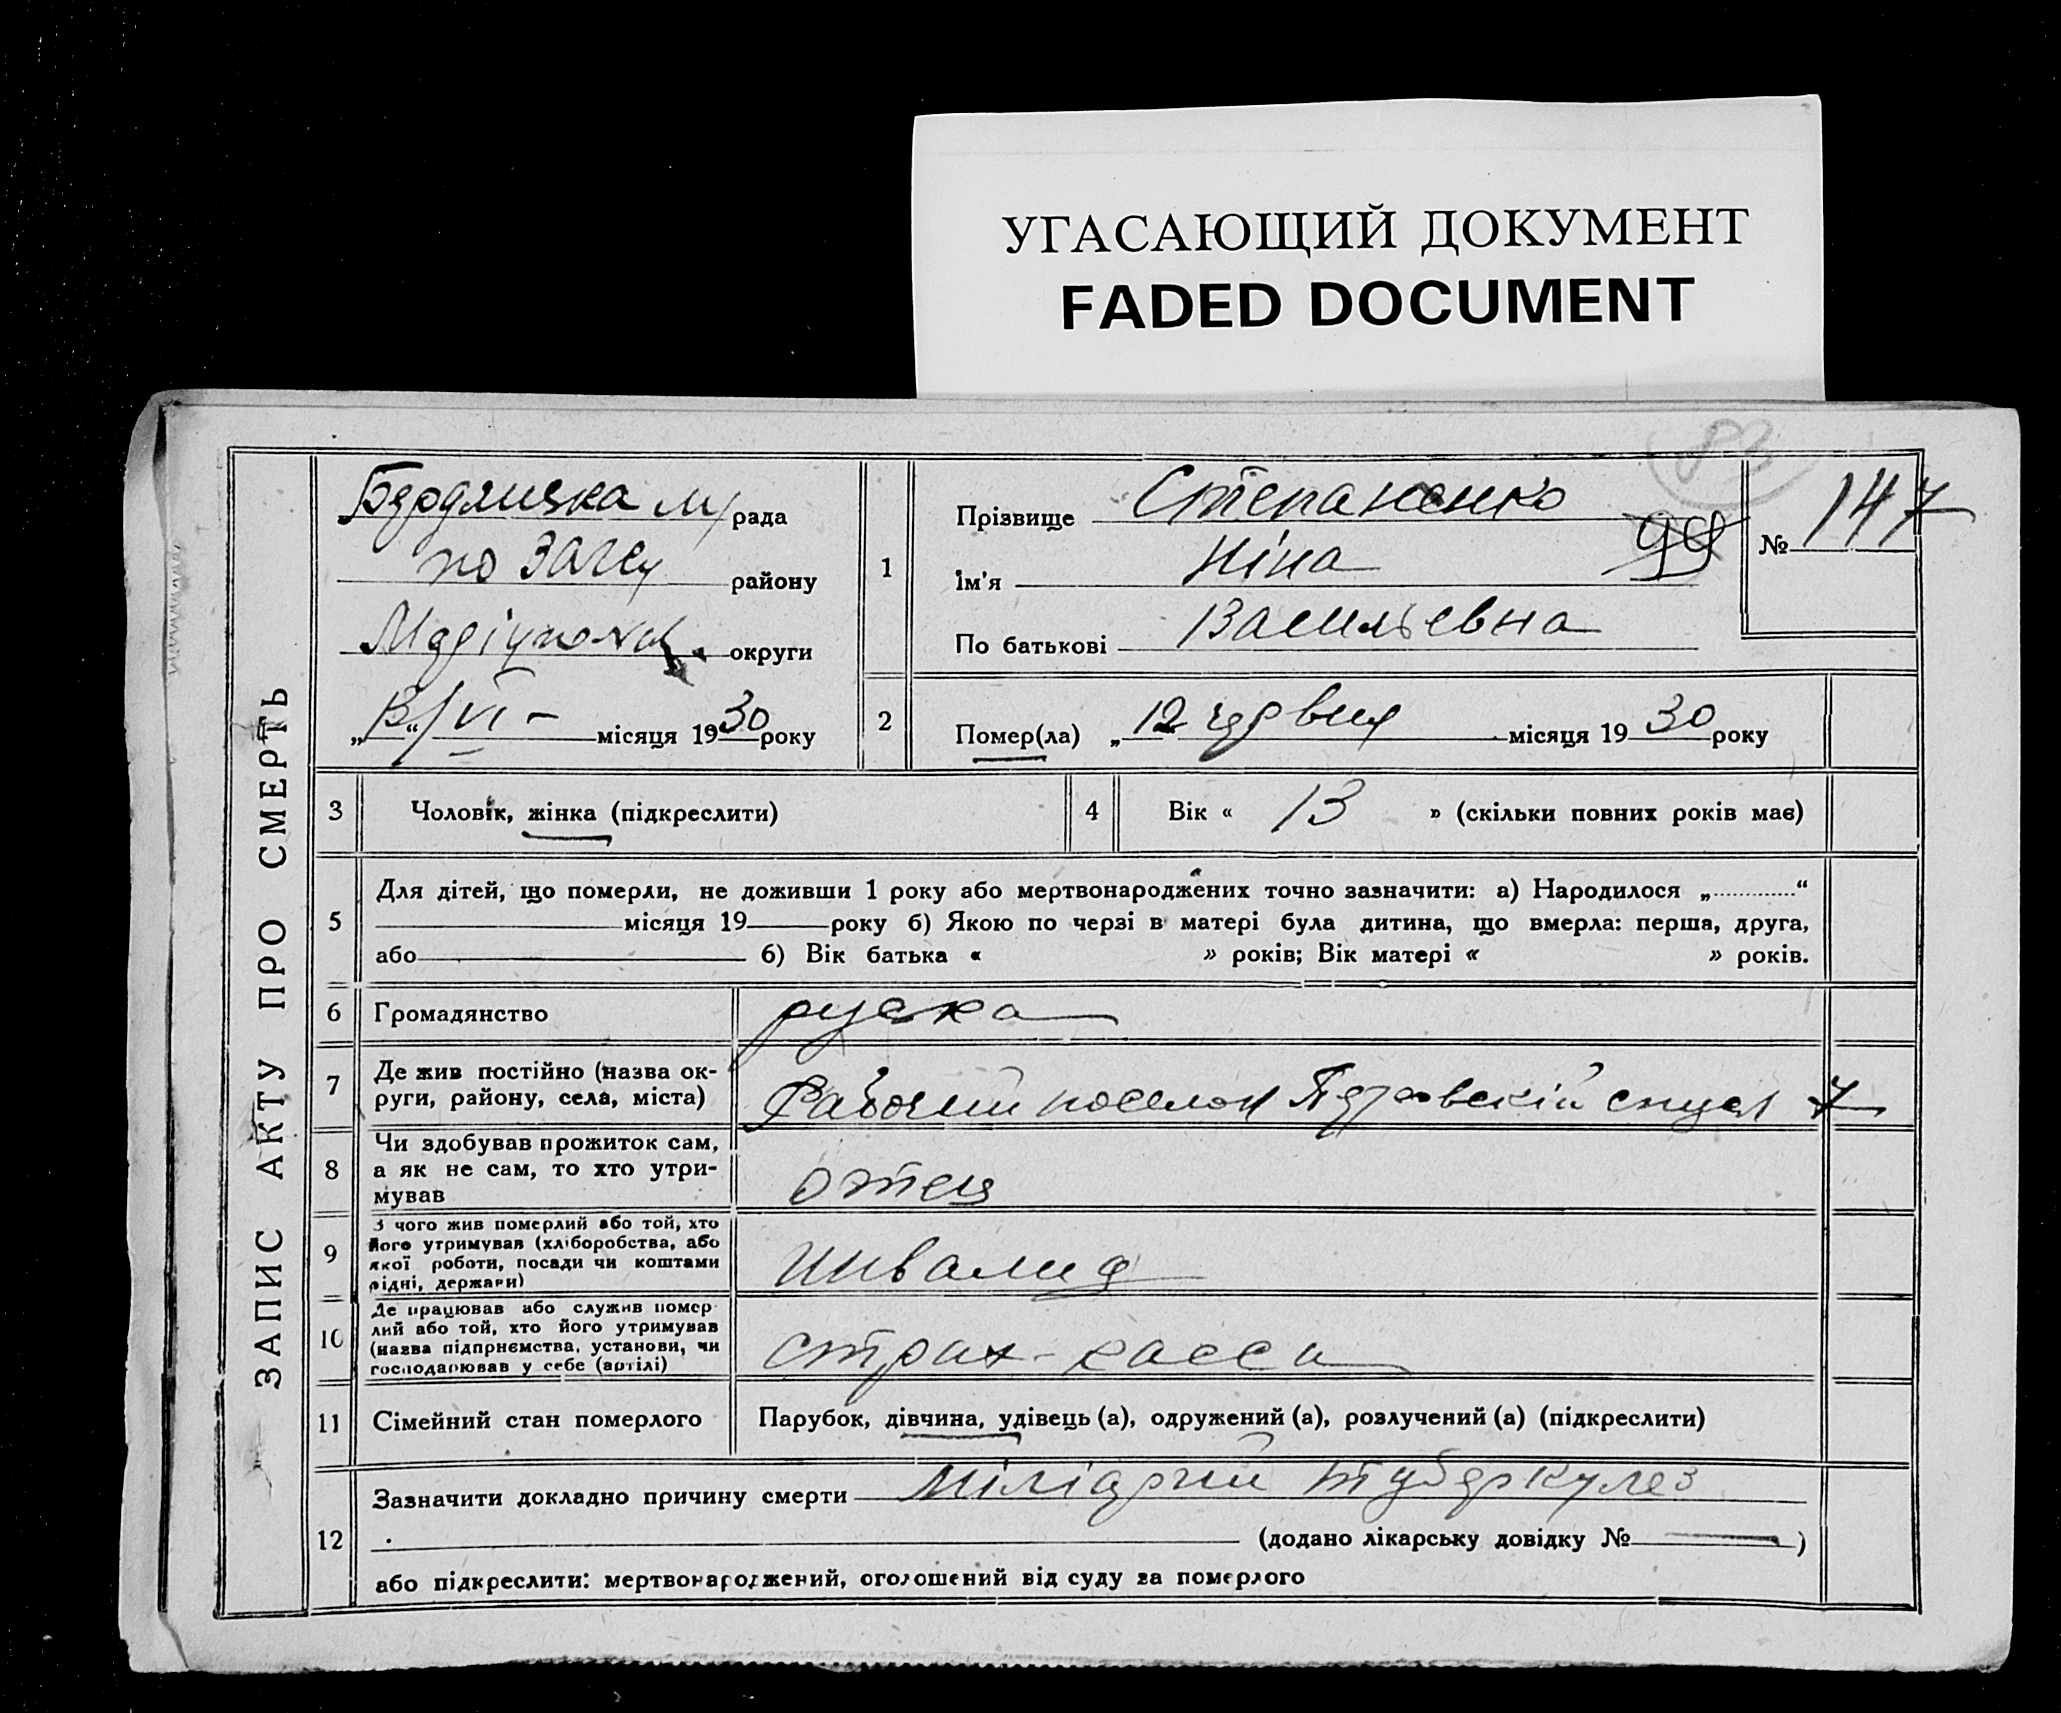 УГАСАЮЩИЙ ДОКУМЕНТ
FADED DOCUMENT
83
ЗАПИС АКТУ ПРО СМЕРТЬ
Бердянська м/рада
по Загсу району
Маріупольск. округи
„13“/VI – місяця 1930 року
1
Прізвище Степаненко
99
Ім'я Ніна
По батькові Васильевна
№ 147
2
Помер(ла) „12 червня місяця 1930 року
3 Чоловік, жінка (підкреслити)
4 Вік « 13 » (скільки повних років має)
5
Для дітей, що померли, не доживши 1 року або мертвонароджених точно зазначити: а) Народилося „ “
місяця 19 року б) Якою по черзі в матері була дитина, що вмерла: перша, друга,
або б) Вік батька « » років; Вік матері « » років.
6 Громадянство руска
7 Де жив постійно (назва ок-
руги, району, села, міста) Рабочий поселок Петровскій спуск 7
8 Чи здобував прожиток сам,
а як не сам, то хто утри-
мував отец
9 З чого жив померлий або той, хто
його утримував (хліборобства, або
якої роботи, посади чи коштами
рідні, держави) инвалид
10 Де працював або служив помер-
лий або той, хто його утримував
(назва підприємства, установи, чи
господарював у себе (артілі) страх-касса
11 Сімейний стан померлого Парубок, дівчина, удівець (а), одружений (а), розлучений (а) (підкреслити)
12
Зазначити докладно причину смерти Міліарний туберкулез
(додано лікарську довідку № )
або підкреслити: мертвонароджений, оголошений від суду за померлого